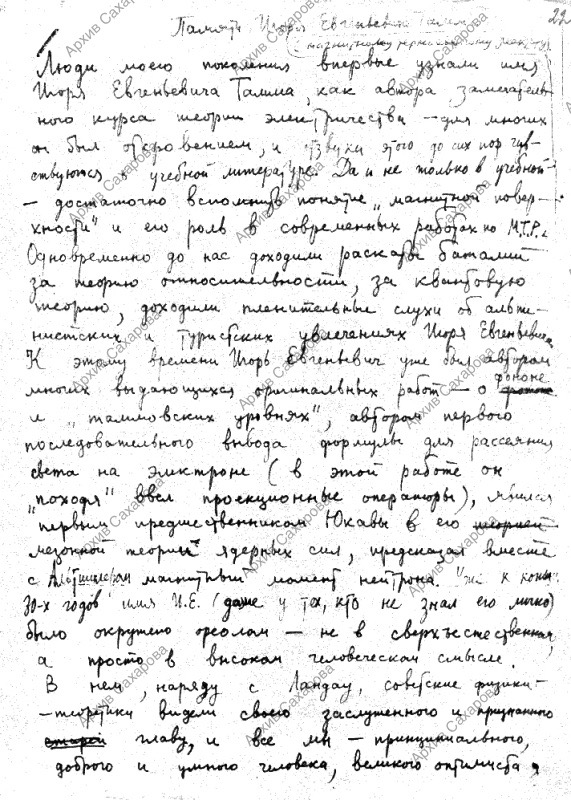 22
Памяти Игоря Евгеньевича Тамма
Люди моего поколения впервые узнали имя
Игоря Евгеньевича Тамма, как автора замечатель-
ного курса теории электричества — для многих
он был откровением, и отзвуки этого до сих пор чув-
ствуются в учебной литературе. Да и не только в учебной
— достаточно вспомнить понятие „магнитной повер-
хности" и его роль в современных работах по М.Т.Р.
Одновременно до нас доходили раскаты баталий
за теорию относительности, за квантовую
теорию, доходили пленительные слухи об альпи-
нистских и туристских увлечениях Игоря Евгеньевича.
К этому времени Игорь Евгеньевич уже был автором
многих выдающихся оригинальных работ — о фононе
и „таммовских уровнях", автором первого
последовательного вывода формулы для рассеяния
света на электроне (в этой работе он
"походя" ввел проекционные операторы), явился
первым предшественником Юкавы в его теорией
мезонной теории ядерных сил, предсказал вместе
с Альтшулером магнитный момент нейтрона. Уже к концу
30-х годов имя И.Е. (даже у тех, кто не знал его лично)
было окружено ореолом — не в сверхъестественном,
а просто в высоком человеческом смысле.
В нем, наряду с Ландау, советские физики-
-теоретики видели своего заслуженного и признанного
главу, и все мы — принципиального,
доброго и умного человека, великого оптимиста,
Архив Сахарова